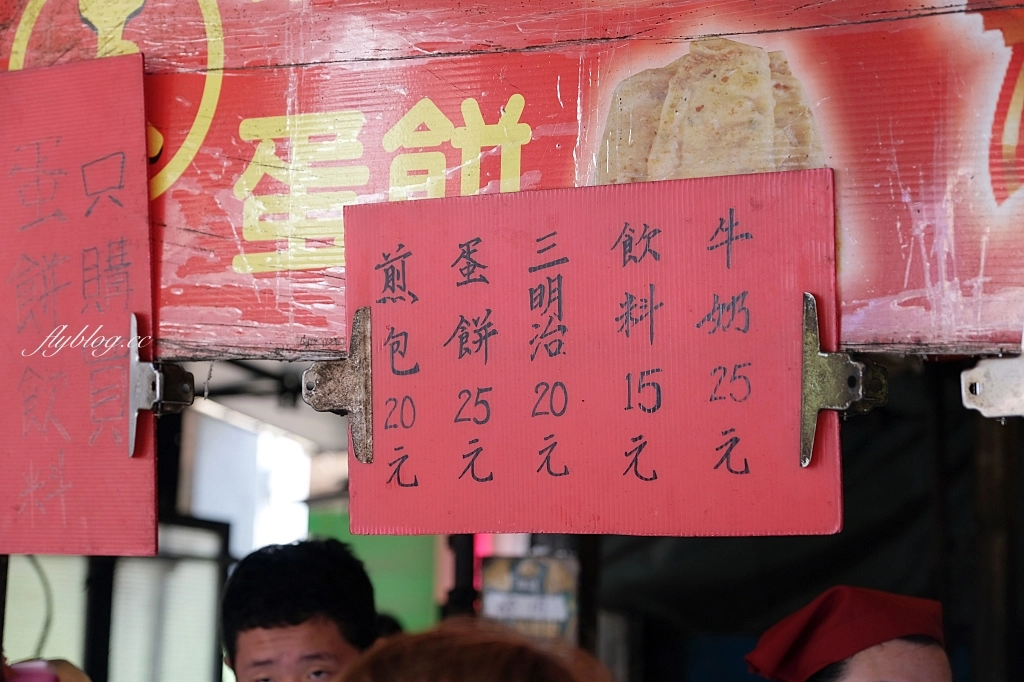 蛋餅
牛奶25元
飲料15元
三明治20元
蛋餅25元
煎包20元
只購買
蛋餅飲料
flyblog.cc